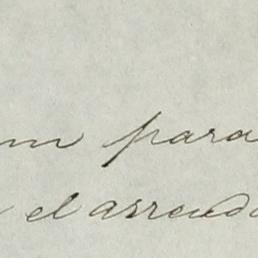 para
el arrenda